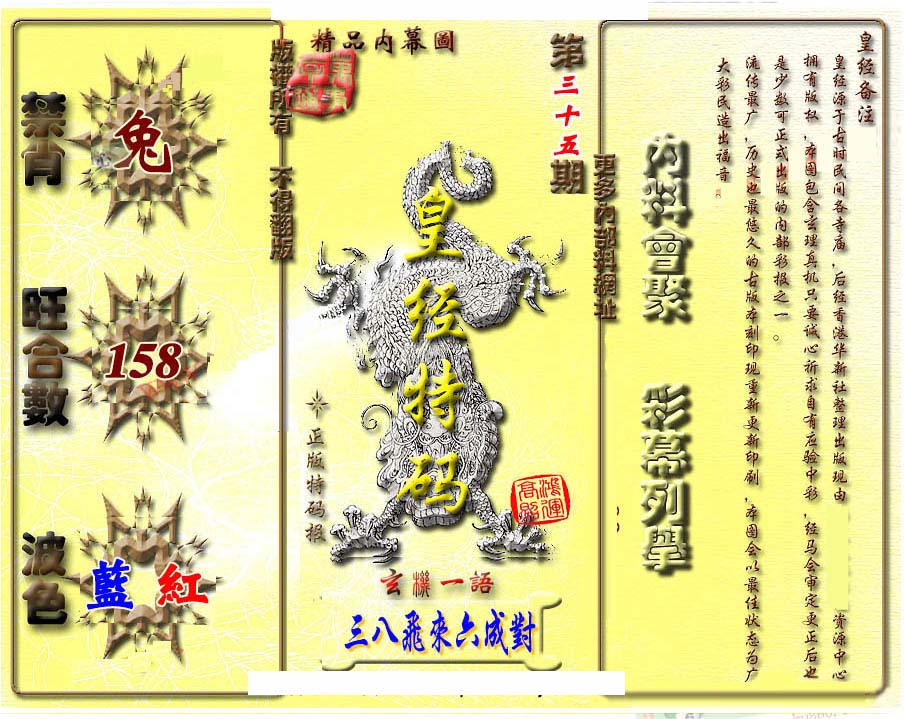 精品内幕圖
第三十五期
版權所有 不得翻版
更多內部料網址
禁肖
兔
旺合數
158
波色
藍 紅
皇经特码
正版特码报
鴻運高照
玄機一語
三八飛來六成對
內料會聚
彩幕列舉
皇经备注
皇经源于古时民间各寺庙,后经香港华新社整理出版现由 资源中心
拥有版权,本图包含玄理真机只要诚心祈求自有应验中彩,经马会审定更正后也
是少数可正式出版的内部彩报之一。
流传最广,历史也最悠久的古版本刻印现重新更新印刷,本图会以最佳状态为广
大彩民造出福音